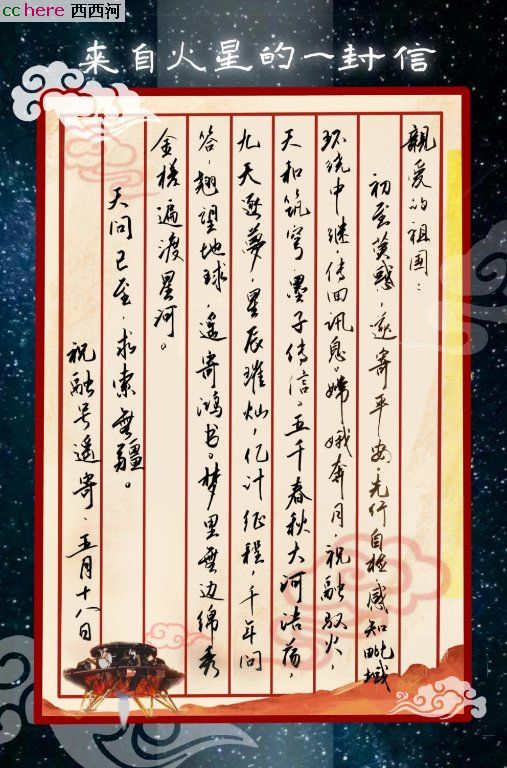 cchere 西西河
来自火星的一封信
親爱的祖国：
初至荧惑，遥寄平安。先行自检感知毗域
环绕中继，传回讯息。嫦娥奔月祝融驭火，
天和筑穹墨子传信。五千春秋大河浩荡，
九天逐夢，星辰璀灿，亿计征程，千年问
答，翘望地球，遥寄鸿书。梦里無边绵秀
金槎遍渡星河。
天问已至，求索無疆。
祝融号遥寄、五月十八日